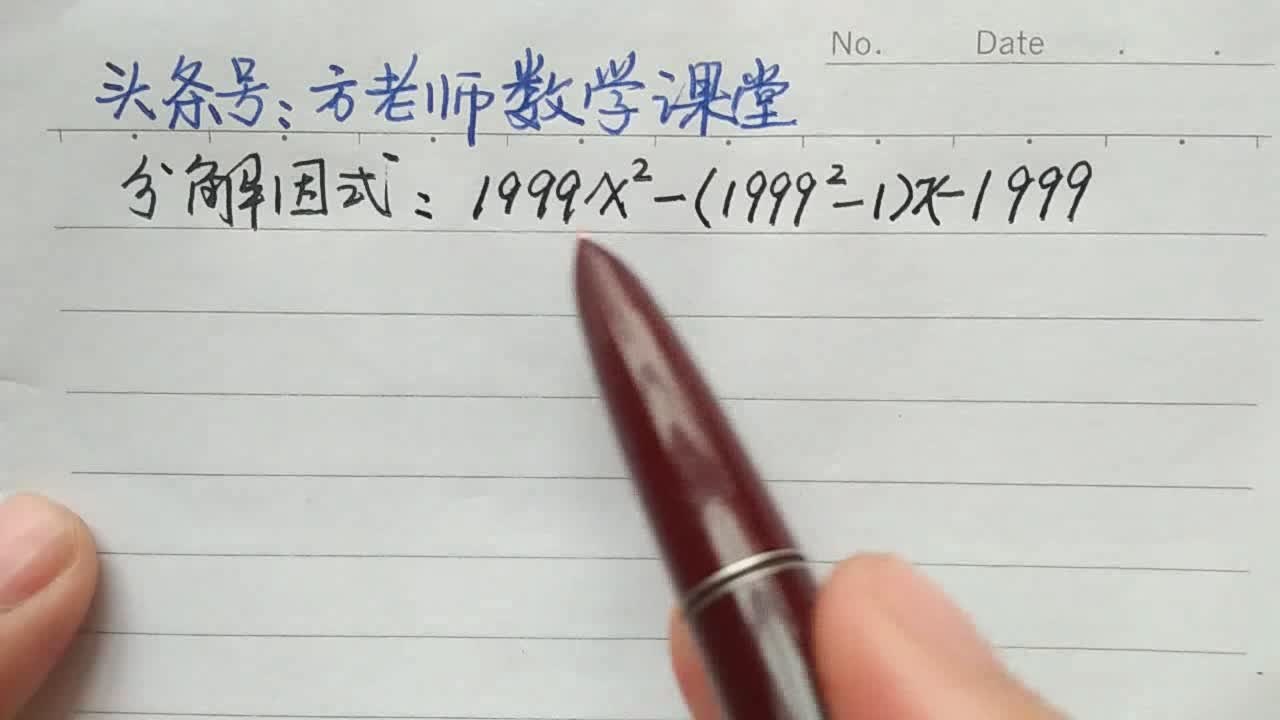 No. Date . .
头条号：方老师数学课堂
分解因式：1999x²-(1999²-1)x-1999